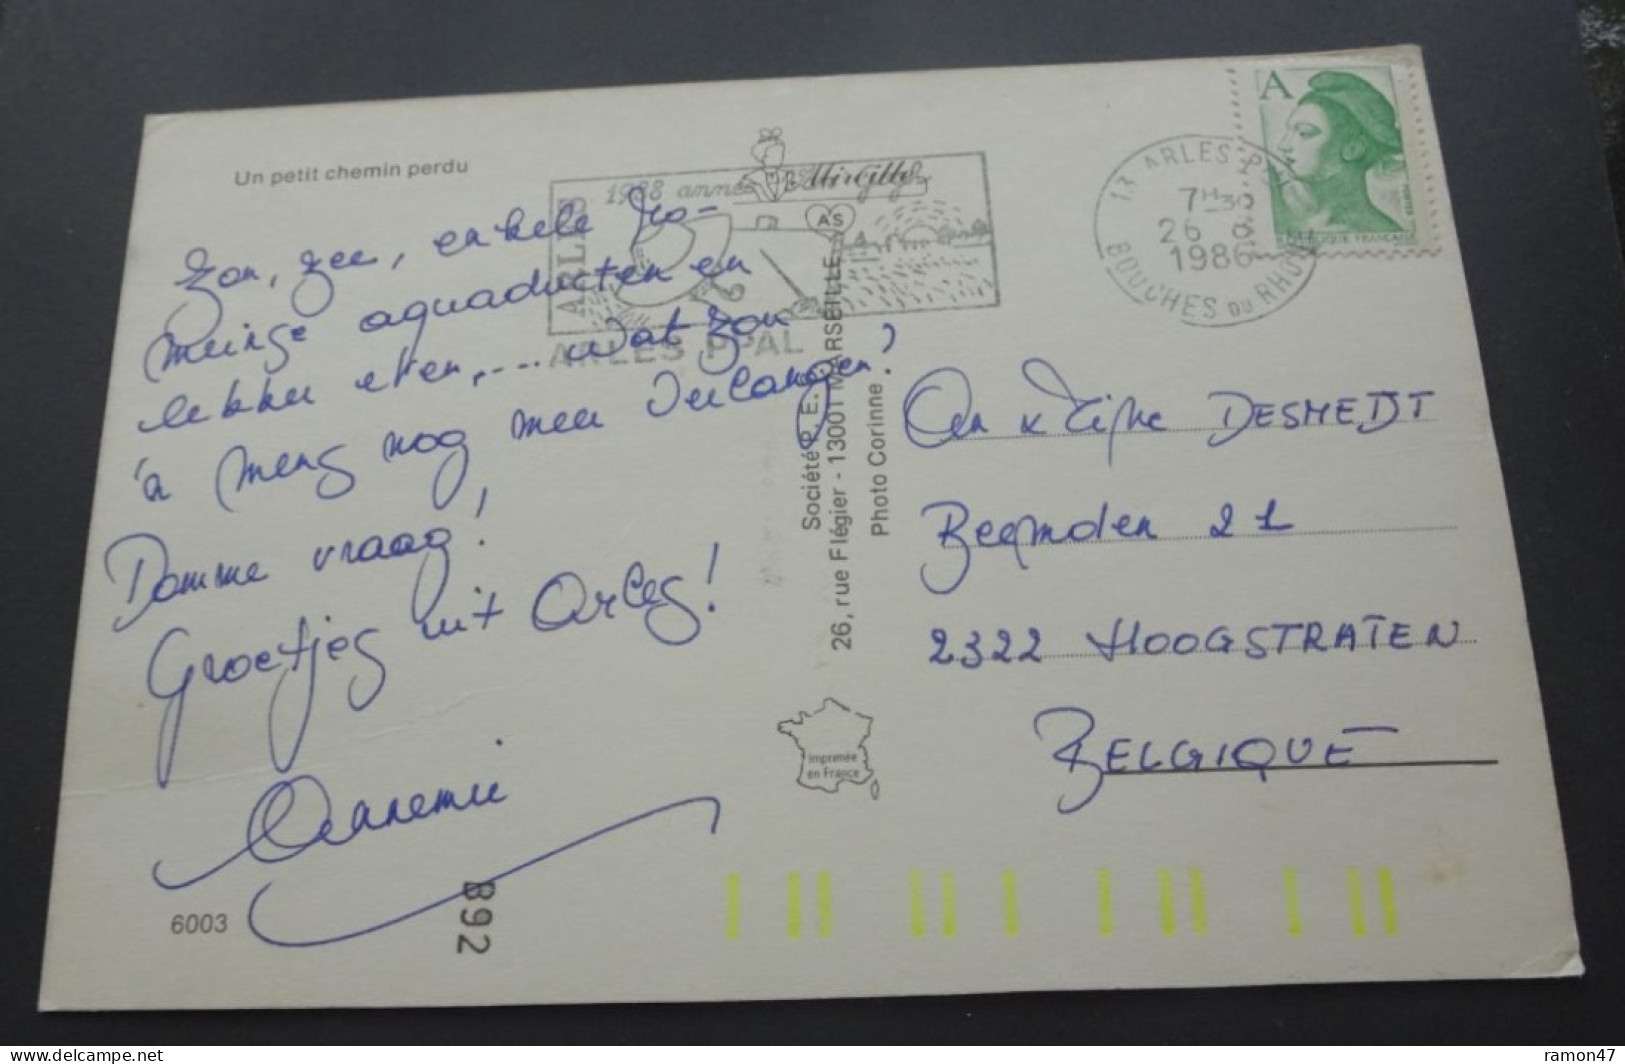 Un petit chemin perdu
Zon, zee, enkele Ro-
meinse aquaducten en
lekker eten,.... wat zou
'n mens nog meer verlangen?
Domme vraag!
Groetjes uit Arles!
Annemie
6003
892
ARLES
1988 année Mireille
AS
ARLES PPAL
Société P. E. C.
26, rue Flégier - 13001 MARSEILLE
Photo Corinne
Imprimée
en France
13 ARLES P
7H30
26
1986
BOUCHES DU RHONE
A
An & DESMEDT
Beemden 21
2322 HOOGSTRATEN
BELGIQUE
delcampe.net
ramon47